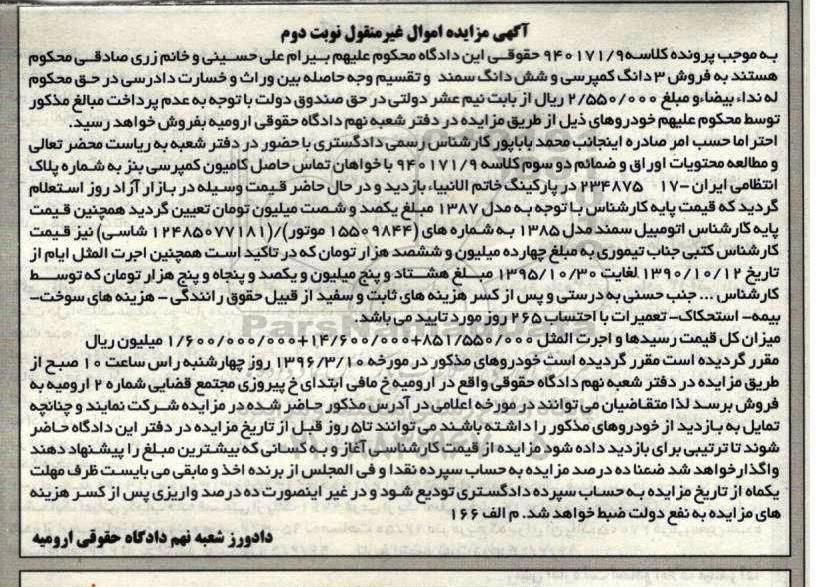 آگهی مزایده اموال غیرمنقول نوبت دوم
به موجب پرونده کلاسه۹۴۰۱۷۱/۹ حقوقی این دادگاه محکوم علیهم بیرام علی حسینی و خانم زری صادقی محکوم
هستند به فروش ۳ دانگ کمپرسی و شش دانگ سمند و تقسیم وجه حاصله بین وراث و خسارت دادرسی در حق محکوم
له نداء بیضاءو مبلغ ۲/۵۵۰/۰۰۰ ریال از بابت نیم عشر دولتی در حق صندوق دولت با توجه به عدم پرداخت مبالغ مذکور
توسط محکوم علیهم خودروهای ذیل از طریق مزایده در دفتر شعبه نهم دادگاه حقوقی ارومیه بفروش خواهد رسید.
احتراما حسب امر صادره اینجانب محمد باباپور کارشناس رسمی دادگستری با حضور در دفتر شعبه به ریاست محضر تعالی
و مطالعه محتویات اوراق و ضمائم دو سوم کلاسه ۹۴۰۱۷۱/۹ با خواهان تماس حاصل کامیون کمپرسی بنز به شماره پلاک
انتظامی ایران -۱۷ ۲۳۴۸۷۵ در پارکینگ خاتم الانبیاء بازدید و در حال حاضر قیمت وسیله در بازار آزاد روز استعلام
گردید که قیمت پایه کارشناس با توجه به مدل ۱۳۸۷ مبلغ یکصد و شصت میلیون تومان تعیین گردید همچنین قیمت
پایه کارشناس اتومبیل سمند مدل ۱۳۸۵ به شماره های (۱۵۵۰۹۸۴۴ موتور)/(۱۲۴۸۵۰۷۷۱۸۱ شاسی) نیز قیمت
کارشناس کتبی جناب تیموری به مبلغ چهارده میلیون و ششصد هزار تومان که در تاکید است همچنین اجرت المثل ایام از
تاریخ ۱۳۹۰/۱۰/۱۲ لغایت ۱۳۹۵/۱۰/۳۰ مبلغ هشتاد و پنج میلیون و یکصد و پنجاه و پنج هزار تومان که توسط
کارشناس ... جنب حسنی به درستی و پس از کسر هزینه های ثابت و سفید از قبیل حقوق رانندگی - هزینه های سوخت-
بیمه- استحکاک- تعمیرات با احتساب ۲۶۵ روز مورد تایید می باشد.
میزان کل قیمت رسیدها و اجرت المثل ۸۵۱/۵۵۰/۰۰۰+۱۴/۶۰۰/۰۰۰+۱/۶۰۰/۰۰۰/۰۰۰ میلیون ریال
مقرر گردیده است مقرر گردیده است خودروهای مذکور در مورخه ۱۳۹۶/۳/۱۰ روز چهارشنبه راس ساعت ۱۰ صبح از
طریق مزایده در دفتر شعبه نهم دادگاه حقوقی واقع در ارومیه خ مافی ابتدای خ پیروزی مجتمع قضایی شماره ۲ ارومیه به
فروش برسد لذا متقاضیان می توانند در مورخه اعلامی در آدرس مذکور حاضر شده در مزایده شرکت نمایند و چنانچه
تمایل به بازدید از خودروهای مذکور را داشته باشند می توانند تا۵ روز قبل از تاریخ مزایده در دفتر این دادگاه حاضر
شوند تا ترتیبی برای بازدید داده شود مزایده از قیمت کارشناسی آغاز و به کسانی که بیشترین مبلغ را پیشنهاد دهند
واگذار خواهد شد ضمنا ده درصد مزایده به حساب سپرده نقدا و فی المجلس از برنده اخذ و مابقی می بایست ظرف مهلت
یکماه از تاریخ مزایده به حساب سپرده دادگستری تودیع شود و در غیر اینصورت ده درصد واریزی پس از کسر هزینه
های مزایده به نفع دولت ضبط خواهد شد. م الف ۱۶۶
دادورز شعبه نهم دادگاه حقوقی ارومیه
ParsNamadData